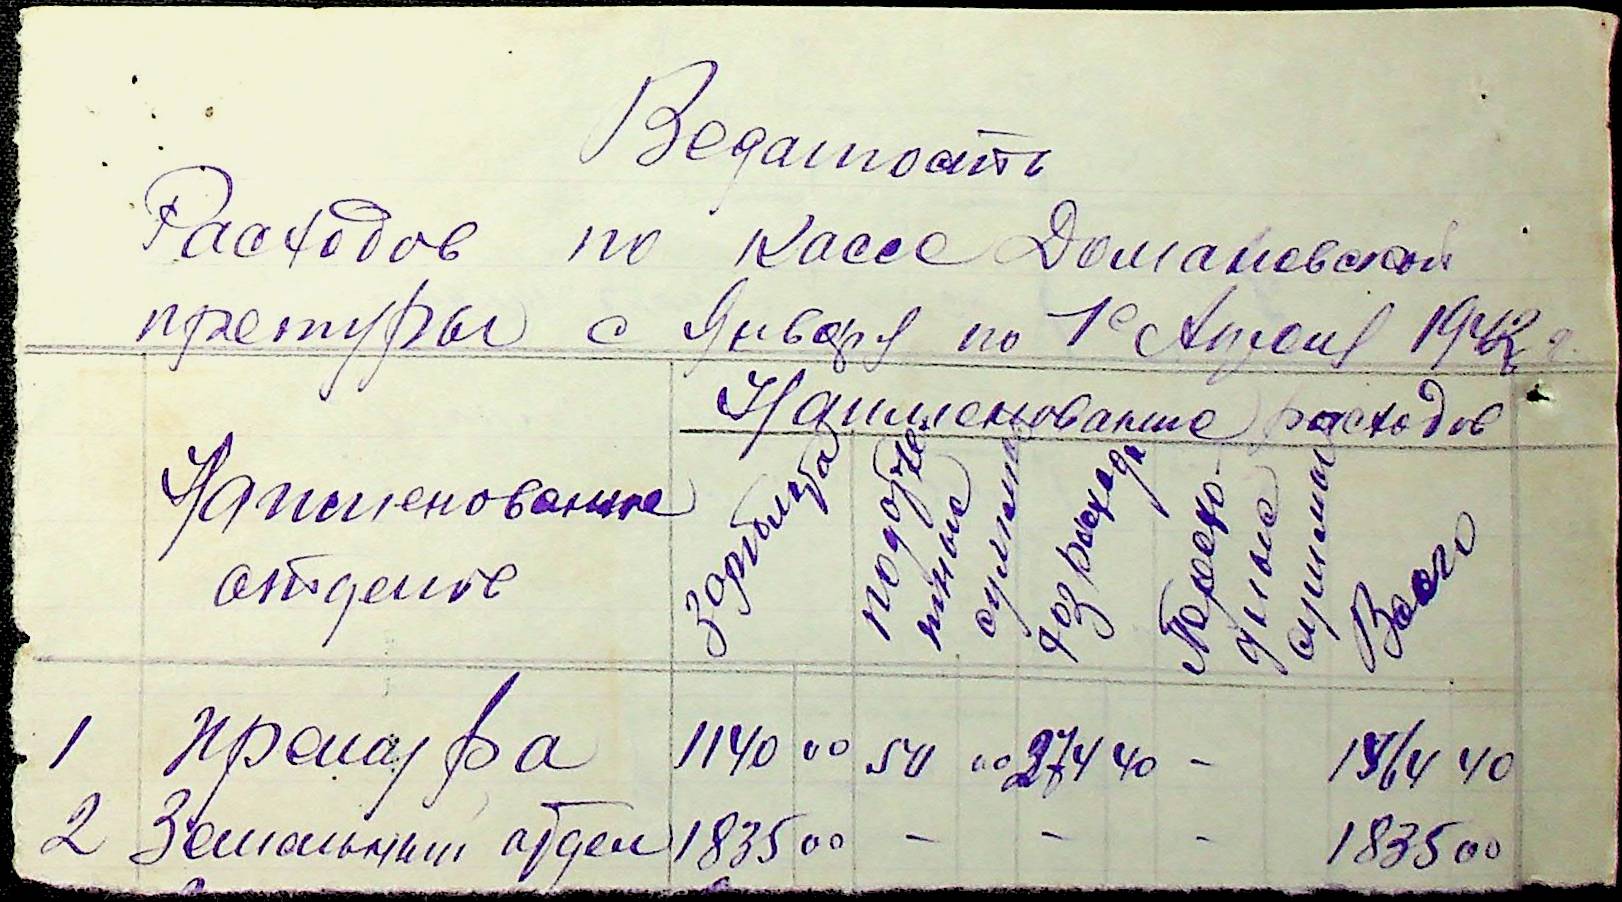 Ведамость
Расходов по кассе Домановской
претуры с Января по 1е Апреля 1942 г.
Наименование расходов
Наименование
отделов
Зарплата
подотче
тные
суммы
хоз расходы
Перехо-
дные
суммы
Всего
1 Претура 1140 00 50 00 274 40 - 1464 40
2 Земельный отдел 1835 00 - - - 1835 00